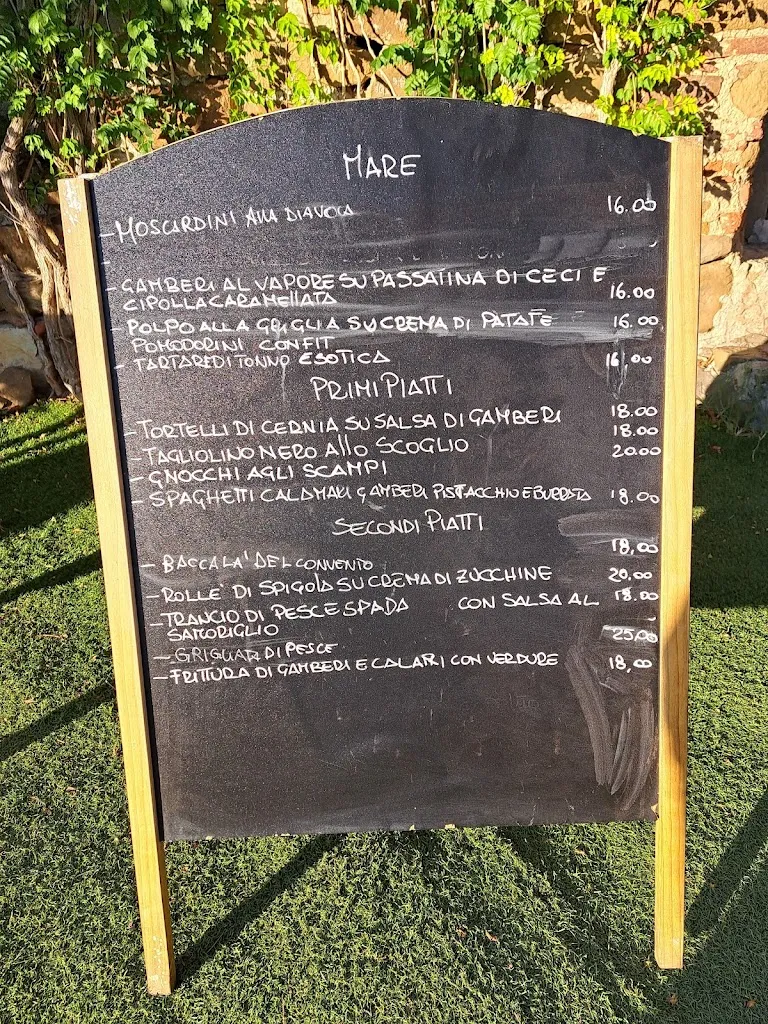 MARE
- MOSCARDINI ALLA DIAVOLA 16.00
-
- GAMBERI AL VAPORE SU PASSATINA DI CECI E
CIPOLLA CARAMELLATA 16.00
- POLPO ALLA GRIGLIA SU CREMA DI PATATE 16.00
POMODORINI CONFIT
- TARTARE DI TONNO ESOTICA 16,00
PRIMI PIATTI
- TORTELLI DI CERNIA SU SALSA DI GAMBERI 18.00
- TAGLIOLINO NERO ALLO SCOGLIO 18.00
- GNOCCHI AGLI SCAMPI 20.00
- SPAGHETTI CALAMARI GAMBERI PISTACCHIO E BURRATA 18.00
SECONDI PIATTI
- BACCALA' DEL CONVENTO 18,00
- ROLLE' DI SPIGOLA SU CREMA DI ZUCCHINE 20,00
- TRANCIO DI PESCE SPADA CON SALSA AL 18.00
SAMORIGLIO
- GRIGLIATA DI PESCE 25,00
- FRITTURA DI GAMBERI E CALAMARI CON VERDURE 18,00